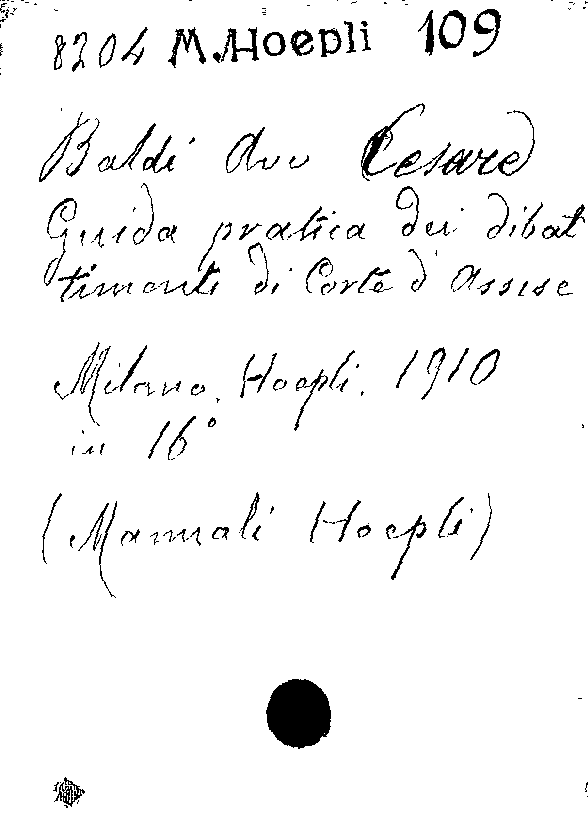 8204 M. Hoepli 109
Baldi Avv Cesare
Guida pratica dei dibat
timenti di Corte d'Assise
Milano, Hoepli, 1910
in 16°
(Manuali Hoepli)